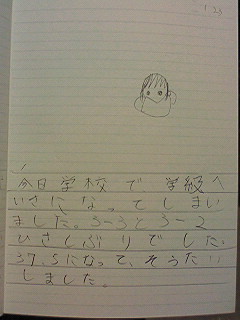 1.23
今日学校で、学級へ
いさになってしまい
ました。3-3と3-2
ひさしぶりでした。
37.5になって、そうたい
しました。